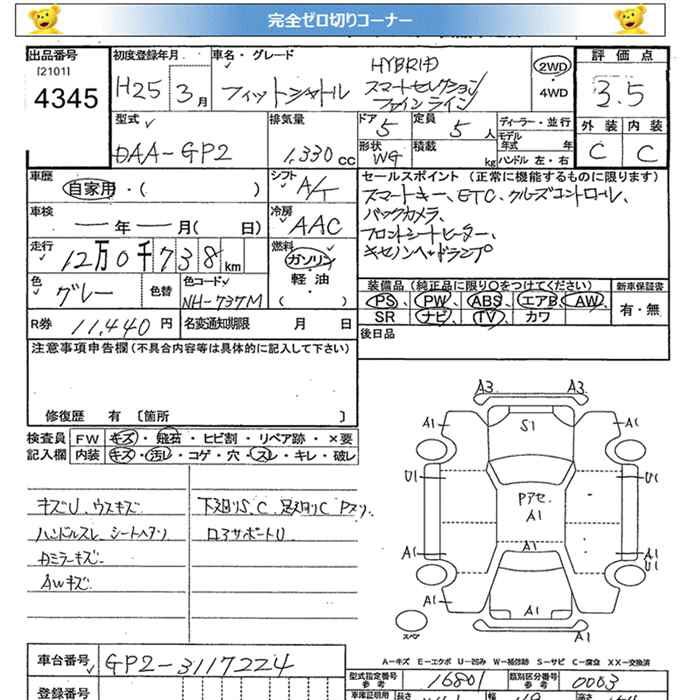 完全ゼロ切りコーナー
出品番号 初度登録年月 車名・グレード HYBRID 2WD 評価点
[2101] 4345 H25 3月 フィットシャトル スマートセレクション ・ 3.5
ファインライン 4WD
型式 排気量 ドア 5 定員 5人 ディーラー・並行 外装 内装
DAA-GP2 1,330cc 形状 WG 積載 kg モデル年式 年 C C
ハンドル 左・右
車歴 自家用・( ) シフト A/T セールスポイント (正常に機能するものに限ります)
車検 ー年ー月( 日) 冷房 AAC スマートキー、ETC、クルーズコントロール、
バックカメラ、
フロントシートヒーター、
キセノンヘッドランプ
走行 12万0千738km 燃料 ガソリン
軽・油
( )
色 グレー 色替 色コード NH-737M 装備品 (純正品に限り○をつけてください) 新車保証書
PS、PW、ABS、エアB、AW、 有・無
SR ナビ、TV、カワ
R券 11,440円 名変通知期限 月 日 後日品
注意事項申告欄 (不具合内容等は具体的に記入して下さい)
修復歴 有 〔箇所 〕
検査員 FW キズ・飛石・ヒビ割・リペア跡・×要
記入欄 内装 キズ・汚レ・コゲ・穴・スレ・キレ・破レ
キズU、ウスキズ
ハンドルスレ、シートヘタリ
Aミラーキズ
AWキズ
下廻りS、C 足廻りC Pスリ、
ロアサポートU
A3 A3
A1 S1 A1
U1 Pアセ A1 U1
A1 A1 A1 U1
A1 A1 A1
スペア
A-キズ E-エクボ U-凹み W-補修跡 S-サビ C-腐食 XX-交換済
車台番号 GP2-3117224
型式指定番号 参考 16801 類別区分番号 参考 0003
登録番号 車庫証明用 長さ 幅 高さ